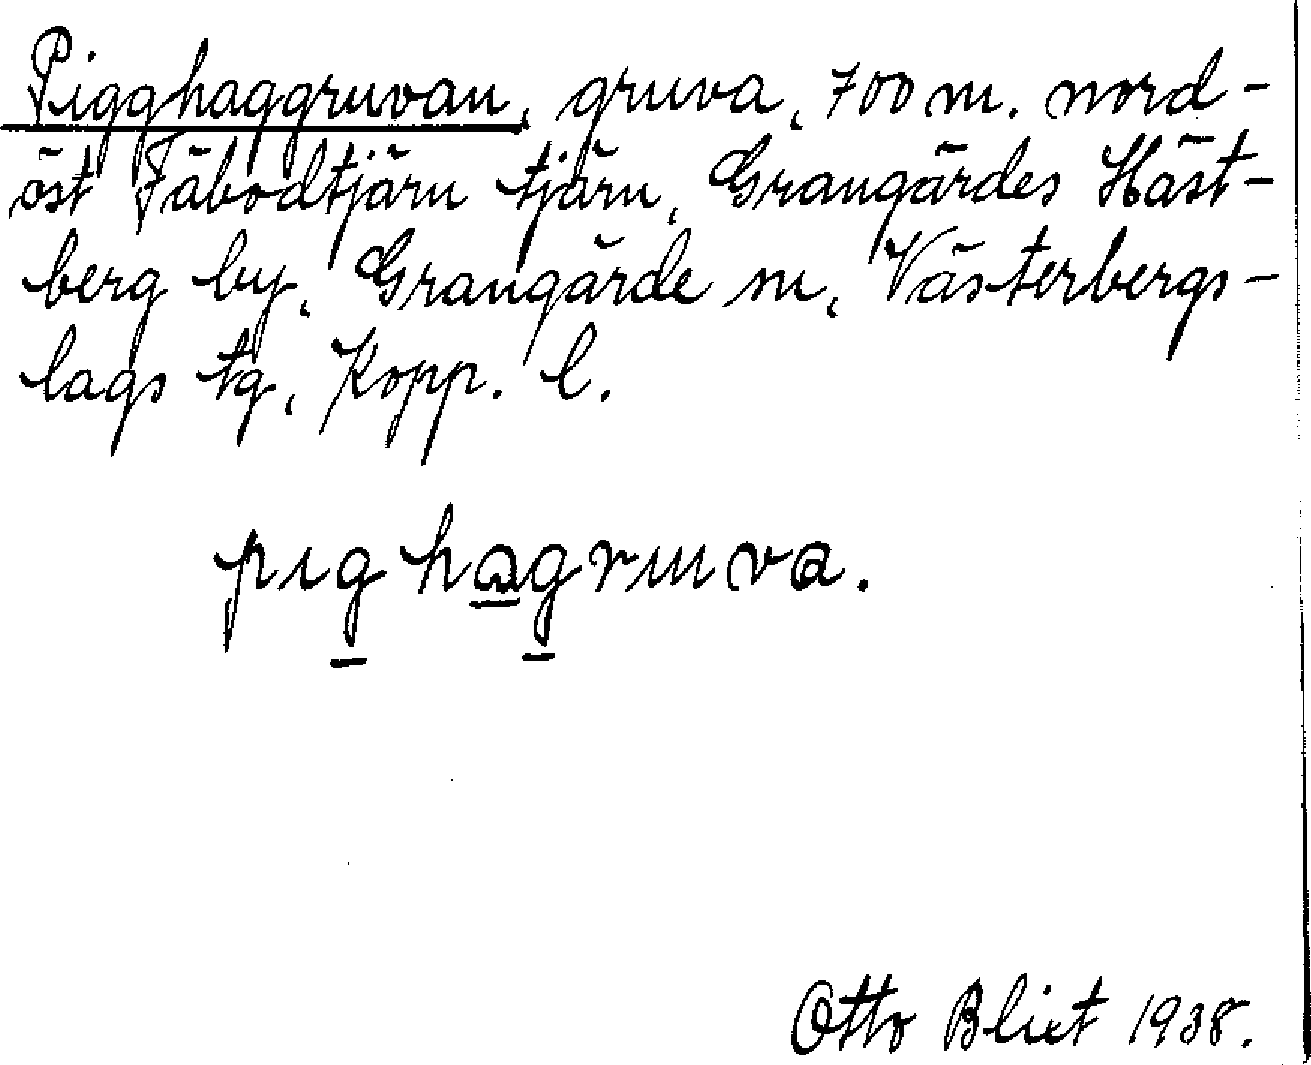 Pigghaggruvan, gruva, 700 m. nord-
öst Fäbodtjärn tjärn, Grangärdes Häst-
berg by, Grangärde sn, Västerbergs-
lags tg, Kopp. l.
pıg hagruva.
Otto Blixt 1938.